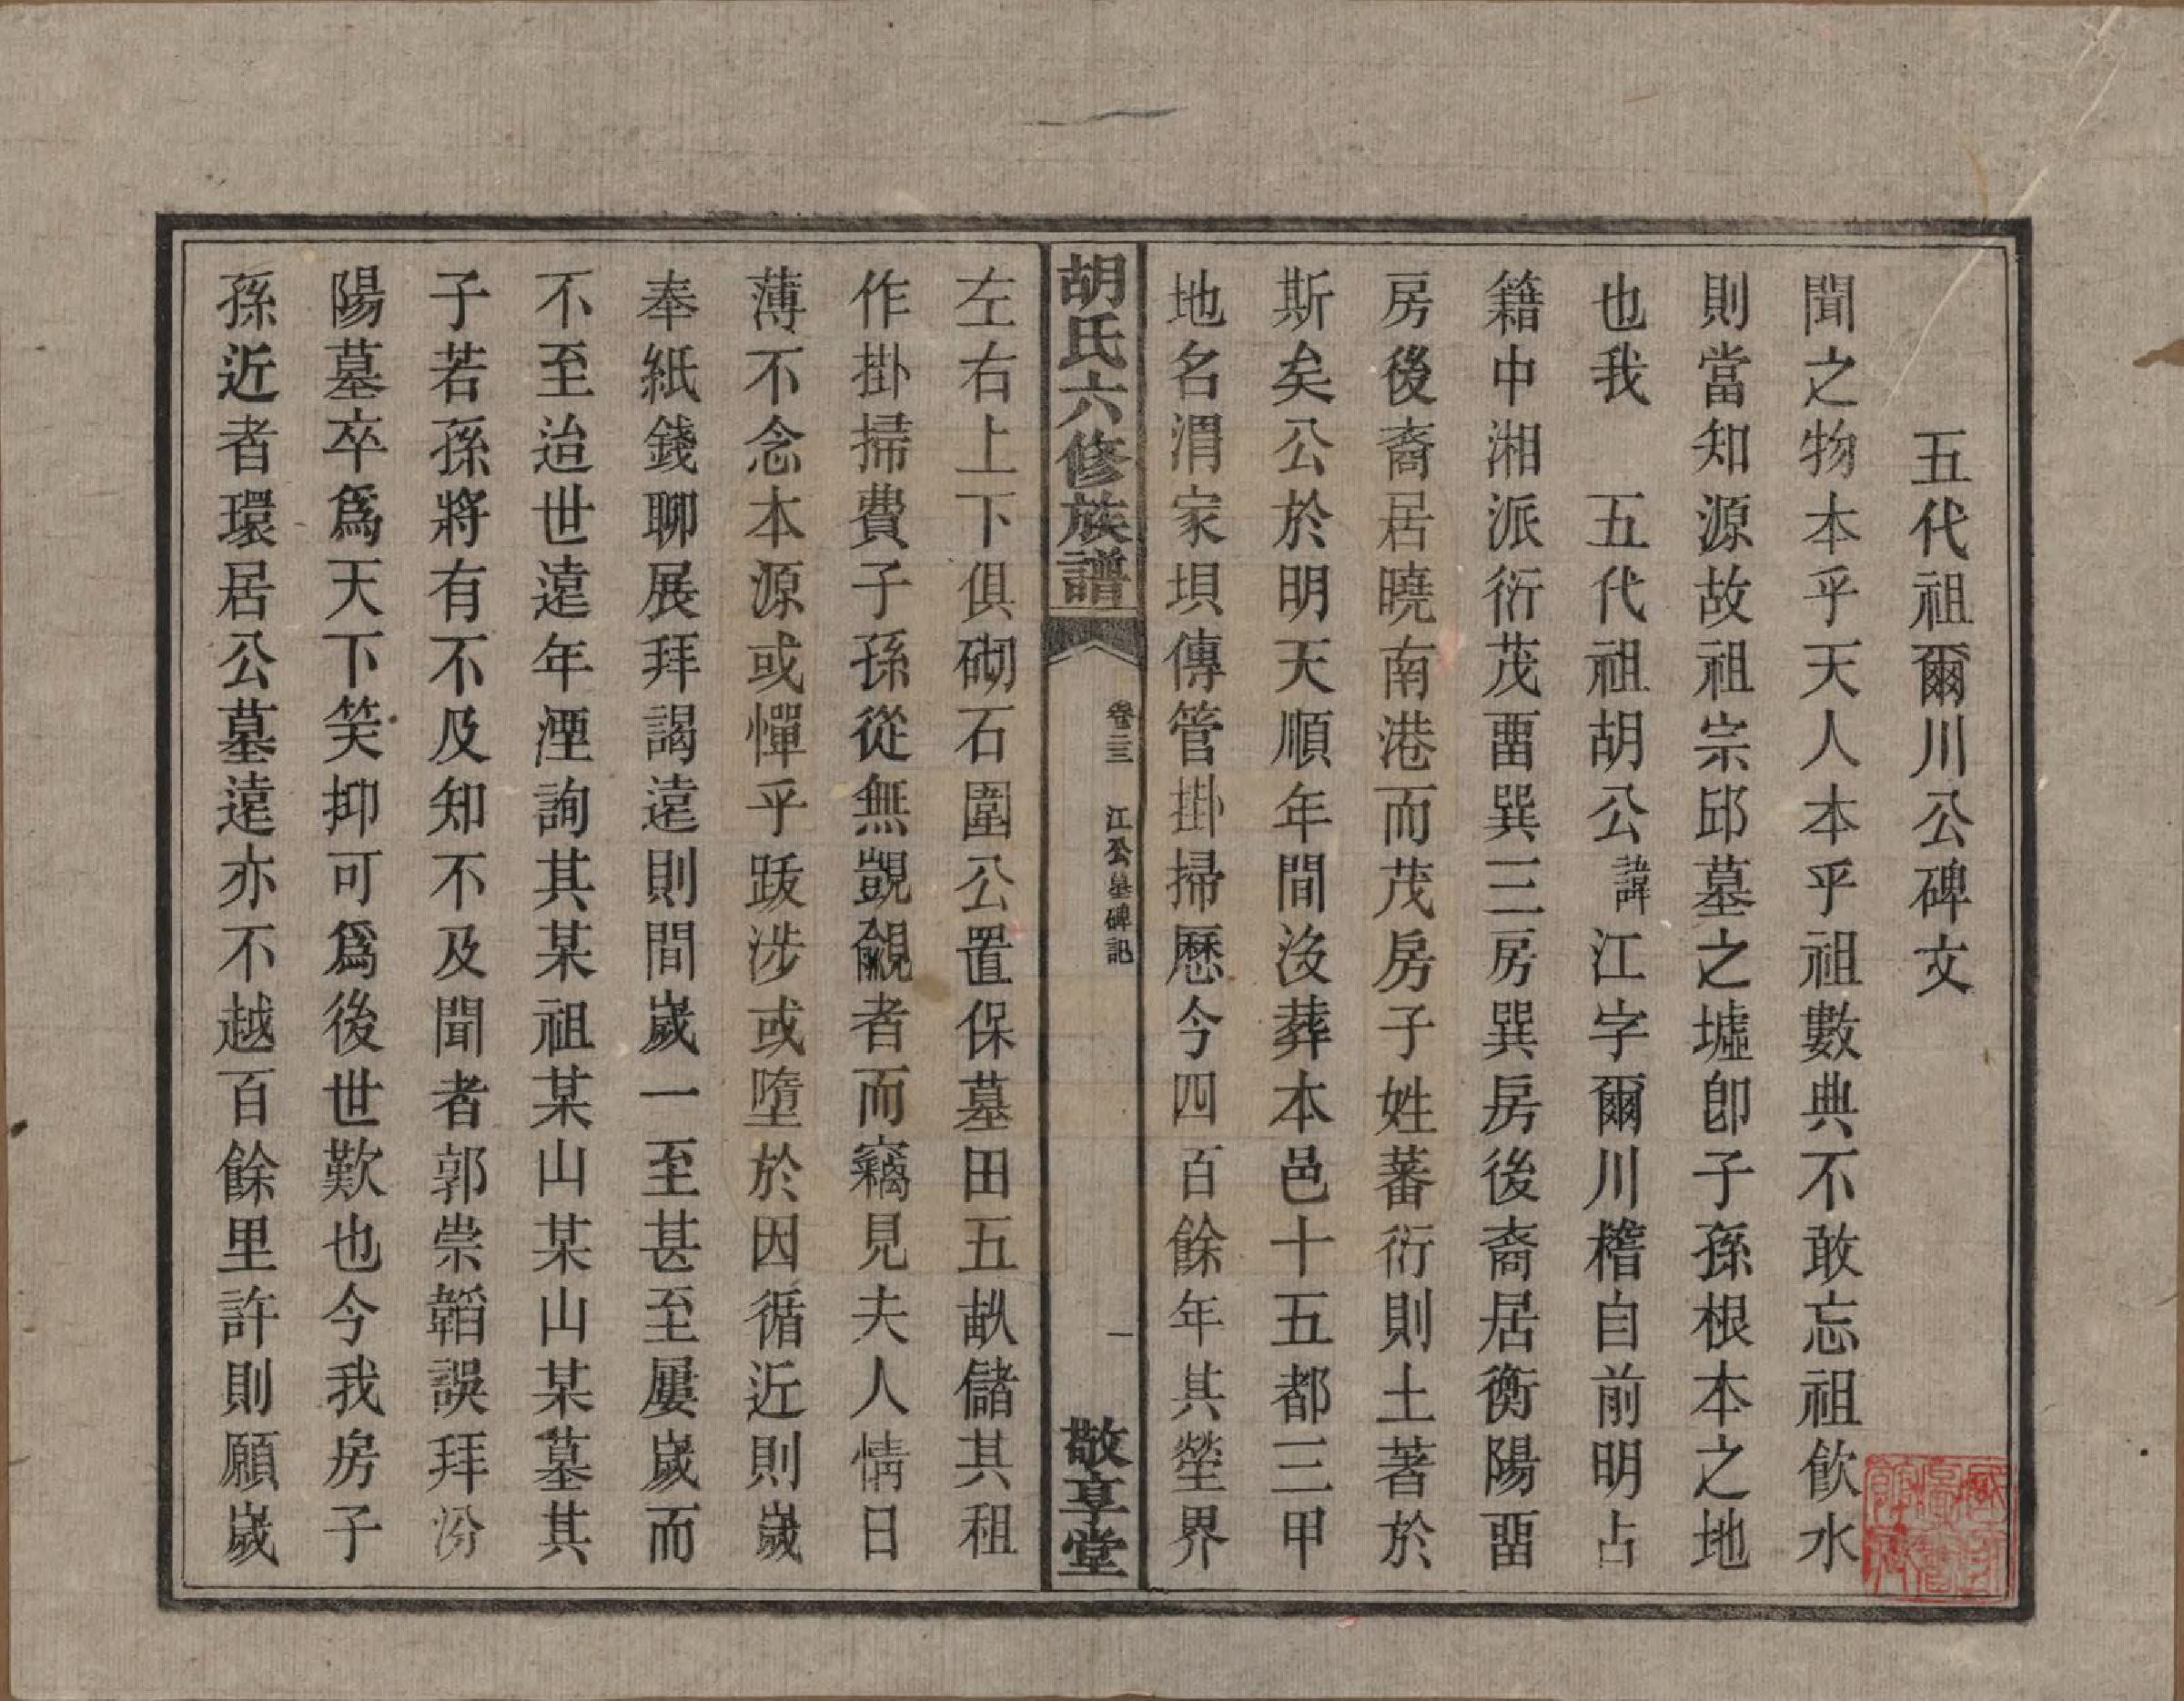 五代祖爾川公碑文
聞之物本乎天人本乎祖數典不敢忘祖飮水
則當知源故祖宗邱墓之墟卽子孫根本之地
也我　五代祖胡公諱江字爾川稽自前明占
籍中湘派衍茂畱巽三房巽房後裔居衡陽畱
房後裔居曉南港而茂房子姓蕃衍則土著於
斯矣公於明天順年間沒葬本邑十五都三甲
地名渭家垻傳管掛掃歷今四百餘年其塋界
胡氏六修族譜
卷三三　江公墓碑記
一
敬享堂
左右上下俱砌石圍公置保墓田五畝儲其租
作掛掃費子孫從無覬覦者而竊見夫人情日
薄不念本源或憚乎跋涉或墮於因循近則歲
奉紙錢聊展拜謁遠則間歲一至甚至屢歲而
不至迨世遠年湮詢其某祖某山某山某墓其
子若孫將有不及知不及聞者郭崇韜誤拜汾
陽墓卒爲天下笑抑可爲後世歎也今我房子
孫近者環居公墓遠亦不越百餘里許則願歲